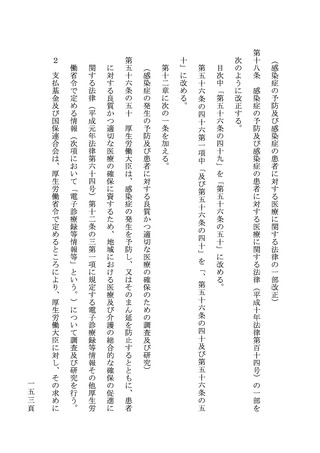 （感染症の予防及び感染症の患者に対する医療に関する法律の一部改正）
第十八条　感染症の予防及び感染症の患者に対する医療に関する法律（平成十年法律第百十四号）の一部を
次のように改正する。
目次中「第五十六条の四十九」を「第五十六条の五十」に改める。
第五十六条の四十六第一項中「及び第五十六条の四十」を「、第五十六条の四十及び第五十六条の五
十」に改める。
第十二章に次の一条を加える。
（感染症の発生の予防及び患者に対する良質かつ適切な医療の確保のための調査及び研究）
第五十六条の五十　厚生労働大臣は、感染症の発生を予防し、又はそのまん延を防止するとともに、患者
に対する良質かつ適切な医療の確保に資するため、地域における医療及び介護の総合的な確保の促進に
関する法律（平成元年法律第六十四号）第十二条の三第一項に規定する電子診療録等情報その他厚生労
働省令で定める情報（次項において「電子診療録等情報等」という。）について調査及び研究を行う。
２　支払基金及び国保連合会は、厚生労働省令で定めるところにより、厚生労働大臣に対し、その求めに
一五三頁